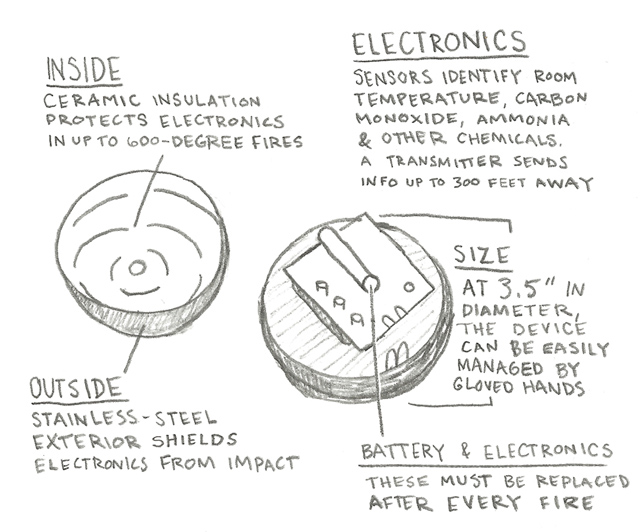 INSIDE
CERAMIC INSULATION
PROTECTS ELECTRONICS
IN UP TO 600-DEGREE FIRES
ELECTRONICS
SENSORS IDENTIFY ROOM
TEMPERATURE, CARBON
MONOXIDE, AMMONIA
& OTHER CHEMICALS.
A TRANSMITTER SENDS
INFO UP TO 300 FEET AWAY
SIZE
AT 3.5" IN
DIAMETER,
THE DEVICE
CAN BE EASILY
MANAGED BY
GLOVED HANDS
OUTSIDE
STAINLESS-STEEL
EXTERIOR SHIELDS
ELECTRONICS FROM IMPACT
BATTERY & ELECTRONICS
THESE MUST BE REPLACED
AFTER EVERY FIRE